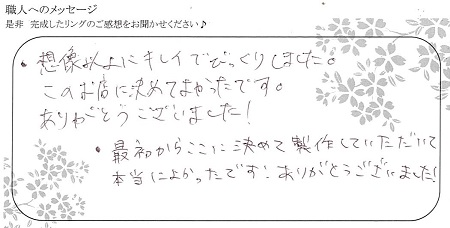 職人へのメッセージ
是非 完成したリングのご感想をお聞かせください♪
・想像以上にキレイでびっくりしました。
このお店に決めてよかったです。
ありがとうございました!
・最初からここに決めて製作していただいて
本当によかったです!ありがとうございました!